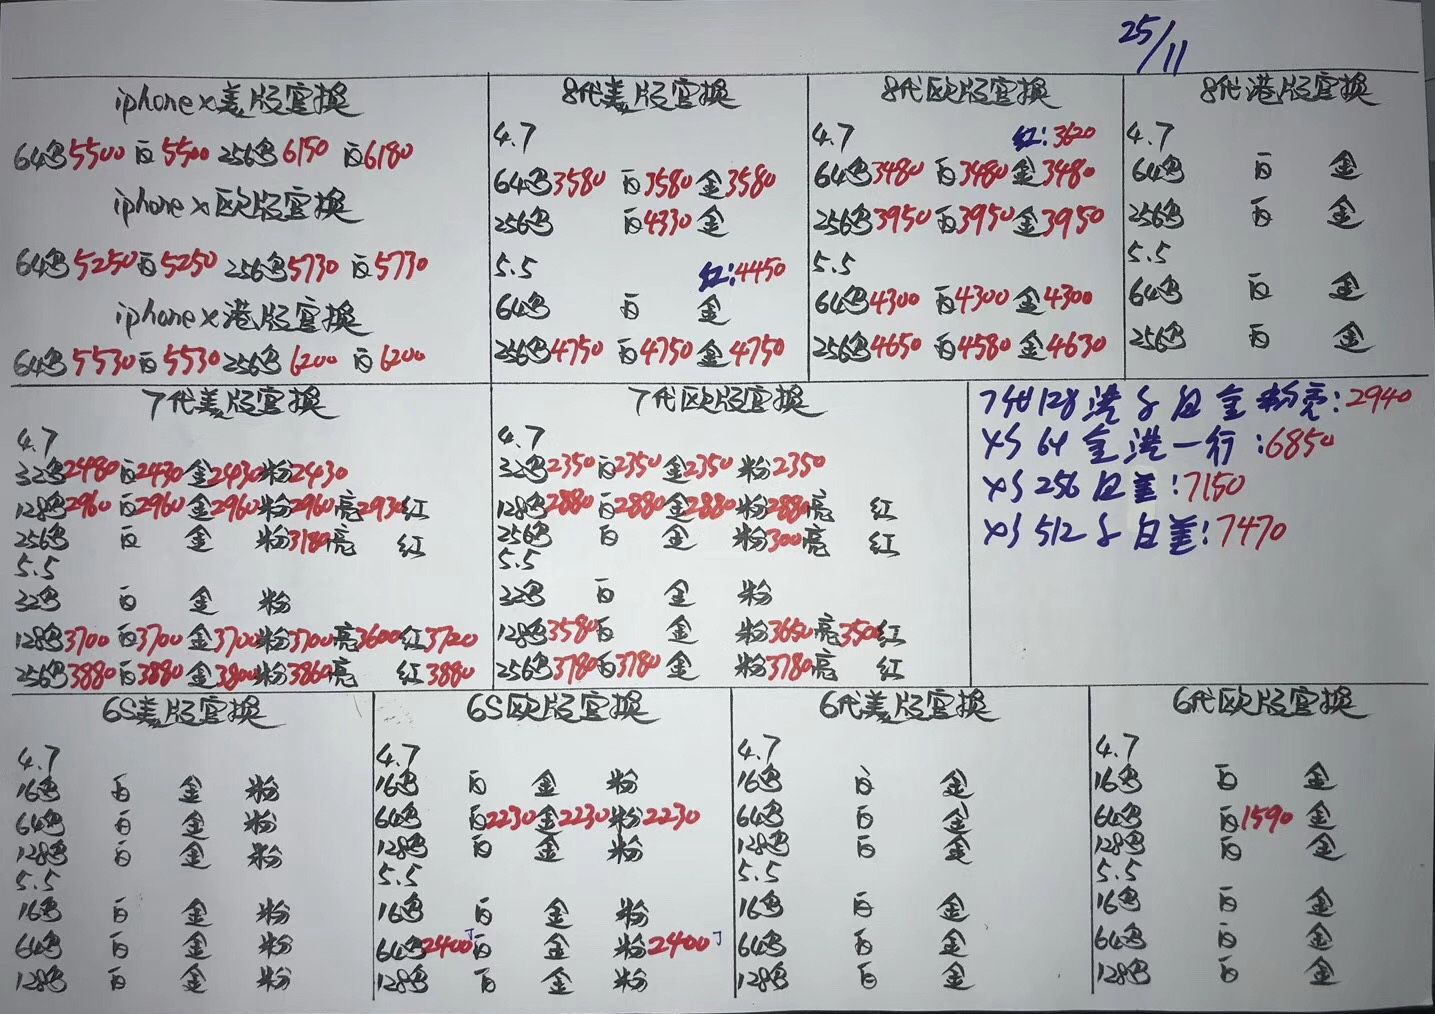 25/11
iphone x美版官换
64黑5500 白5500 256黑6150 白6180
iphone x欧版官换
64黑5250白5250 256黑5730 白5730
iphone x港版官换
64黑5530白5530 256黑6200 白6200
8代美版官换
4.7
64黑3580 白3580金3580
256黑 白4330金
5.5 红:4450
64黑 白 金
256黑4750 白4750金4750
8代欧版官换
4.7 红:3620
64黑3480 白3480金3480
256黑3950 白3950金3950
5.5
64黑4300 白4300金4300
256黑4650 白4580金4630
8代港版官换
4.7
64黑 白 金
256黑 白 金
5.5
64黑 白 金
256黑 白 金
7代美版官换
4.7
32黑2480白2430金2430粉2430
128黑2960白2960金2960粉2960亮2930红
256黑 白 金 粉3180亮 红
5.5
32黑 白 金 粉
128黑3700白3700金3700粉3700亮3600红3720
256黑3880白3880金3800粉3860亮 红3880
7代欧版官换
4.7
32黑2350白2350金2350 粉2350
128黑2880白2880金2880粉2880亮 红
256黑 白 金 粉300亮 红
5.5
32黑 白 金 粉
128黑3580白 金 粉3650亮350红
256黑3780白3780金 粉3780亮 红
7代128港 白金粉亮:2940
XS 64金港一行:6850
XS 256白美:7150
XS 512 白美:7470
6S美版官换
4.7
16黑 白 金 粉
64黑 白 金 粉
128黑 白 金 粉
5.5
16黑 白 金 粉
64黑 白 金 粉
128黑 白 金 粉
6S欧版官换
4.7
16黑 白 金 粉
64黑 白2230金2230粉2230
128黑 白 金 粉
5.5
16黑 白 金 粉
64黑2400白 金 粉2400
128黑 白 金 粉
6代美版官换
4.7
16黑 白 金
64黑 白 金
128黑 白 金
5.5
16黑 白 金
64黑 白 金
128黑 白 金
6代欧版官换
4.7
16黑 白 金
64黑 白1590金
128黑 白 金
5.5
16黑 白 金
64黑 白 金
128黑 白 金